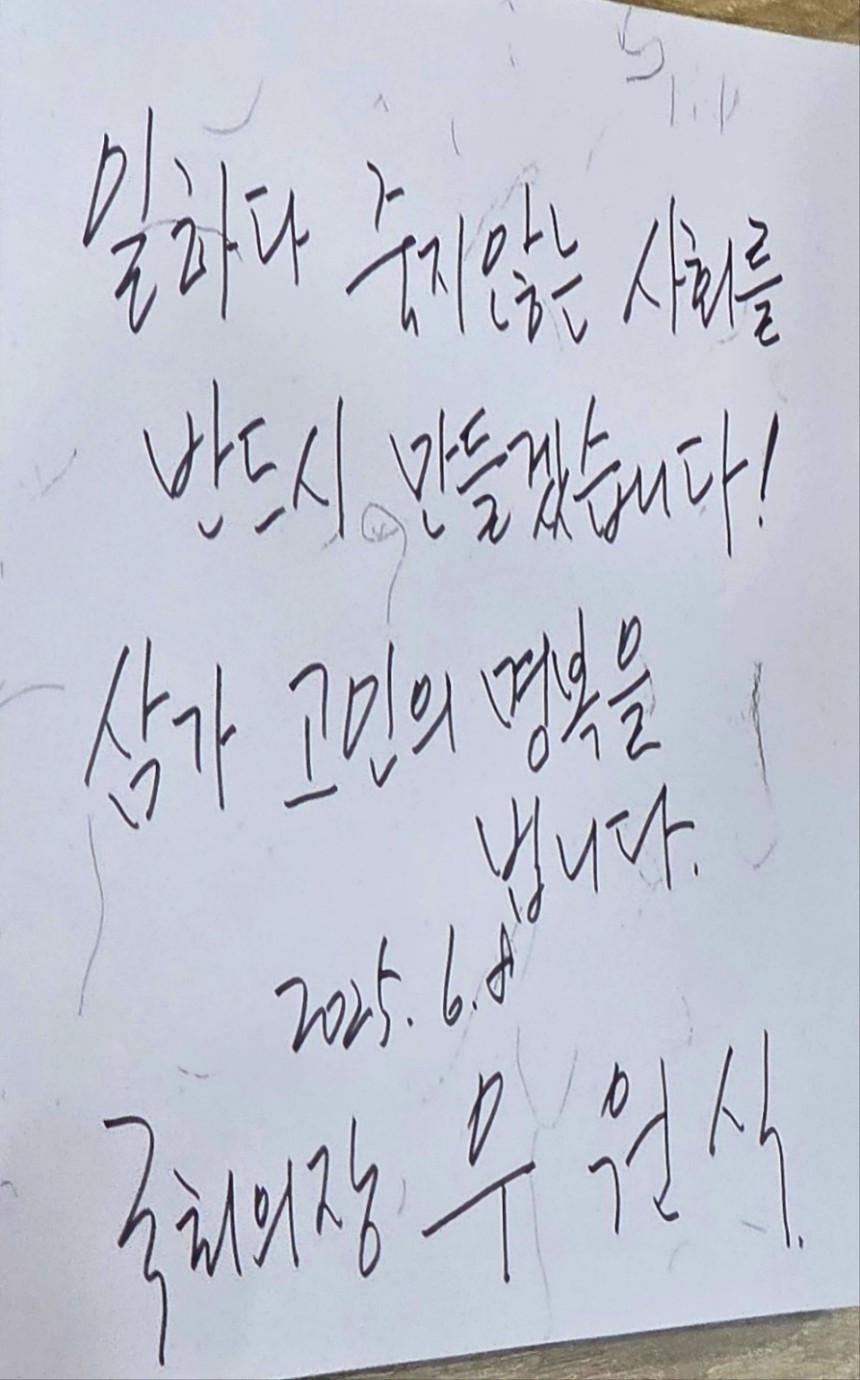 일하다 죽지않는 사회를
반드시 만들겠습니다!
삼가 고인의 명복을
빕니다.
2025. 6. 8
국회의장 우 원 식.